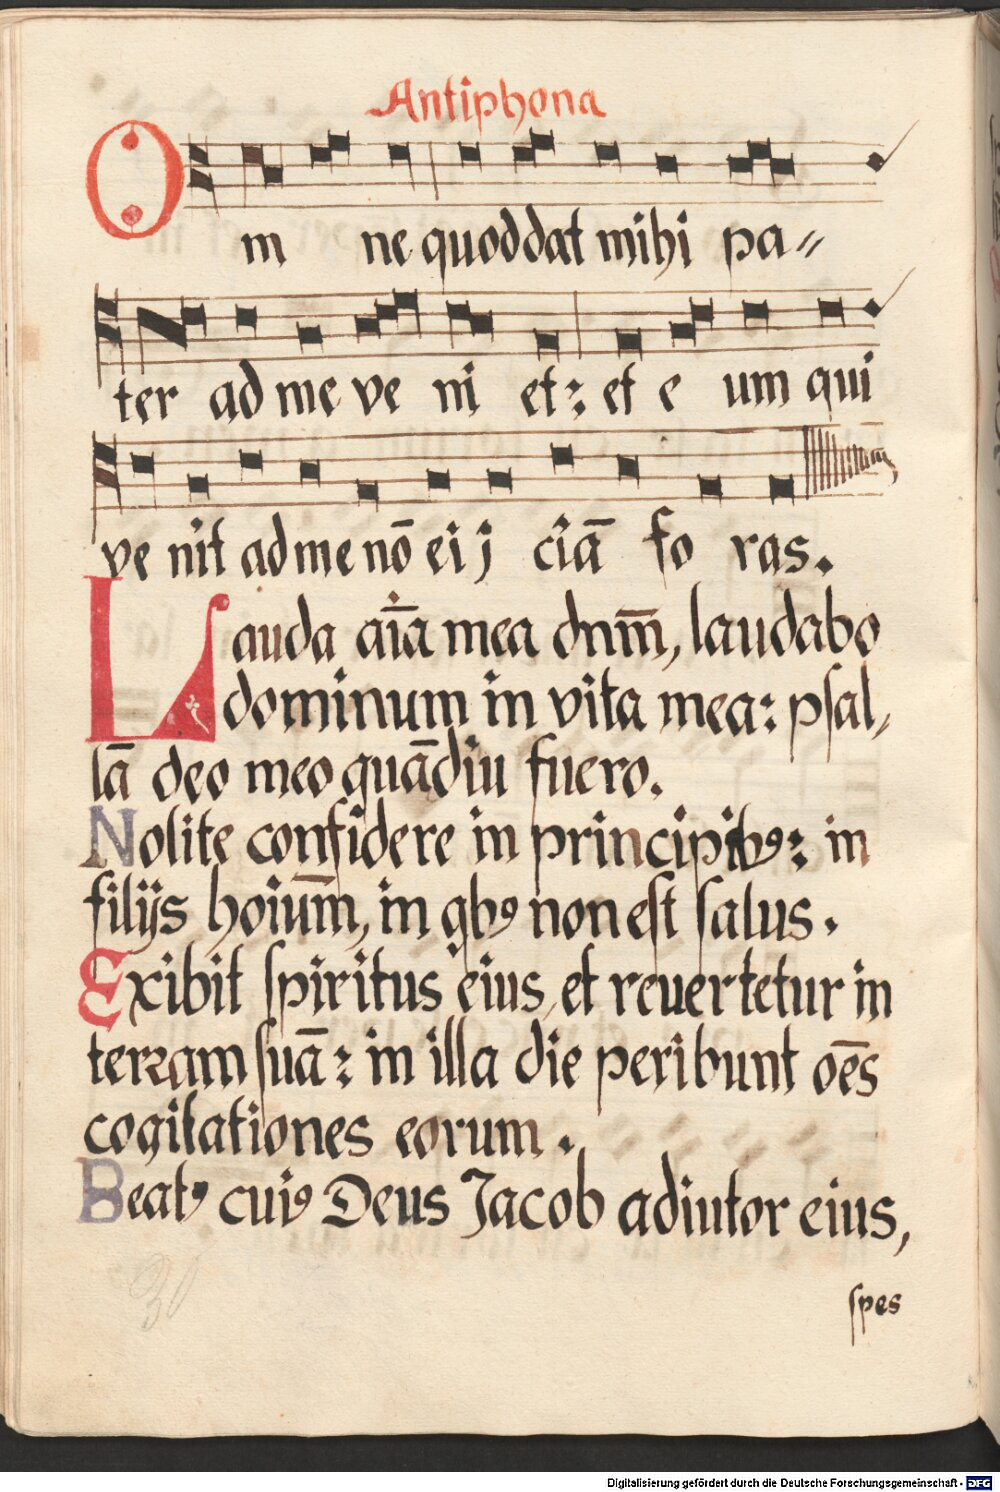 Antiphona
O m ne quod dat mihi pa⸗
ter ad me ve ni et: et e um qui
ve nit ad me nō ei j ciā fo ras.
Lauda aīa mea dnm̄, laudabo
dominum in vita mea: psal,
lā deo meo quādiu fuero.
Nolite confidere in principibꝰ: in
filijs hoium̄, in qbꝰ non est salus.
Exibit spiritus eius, et reuertetur in
terram suā: in illa die peribunt oēs
cogitationes eorum.
Beatꝰ cuiꝰ Deus Jacob adiutor eius,
spes
30
Digitalisierung gefördert durch die Deutsche Forschungsgemeinschaft - DFG